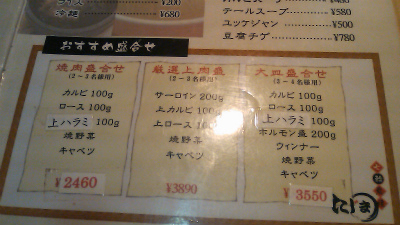 ¥200
冷麺 ¥680
テールスープ ¥580
ユッケジャン ¥500
豆腐チゲ ¥780
おすすめ盛合せ
焼肉盛合せ
(2~3名様用)
カルビ 100g
ロース 100g
上ハラミ 100g
焼野菜
キャベツ
¥2460
厳選上肉盛
(2~3名様用)
サーロイン 200g
上カルビ 100g
上ロース 100g
焼野菜
キャベツ
¥3890
大皿盛合せ
(2~3名様用)
カルビ 100g
ロース 100g
上ハラミ 100g
ホルモン盛 200g
ウィンナー
焼野菜
キャベツ
¥3550